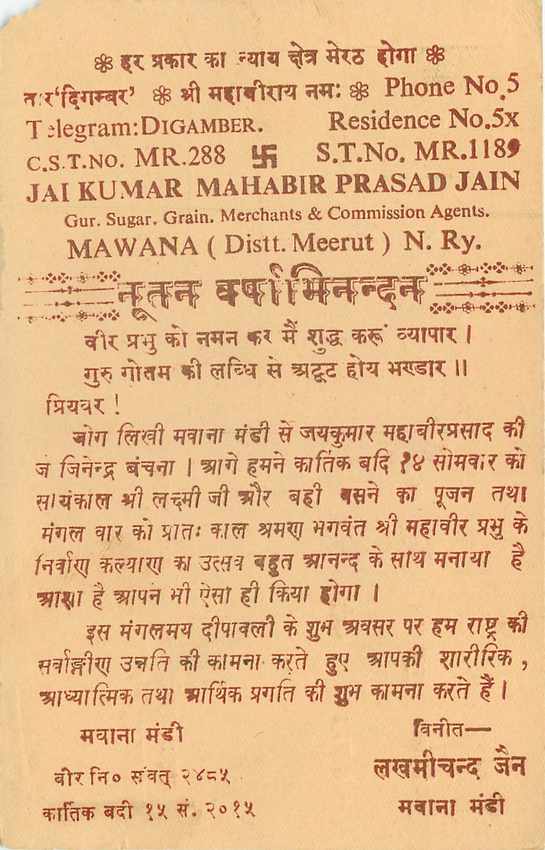 हर प्रकार का न्याय क्षेत्र मेरठ होगा
तार 'दिगम्बर' श्री महावीराय नमः Phone No.5
Telegram: DIGAMBER. Residence No.5x
C.S.T.NO. MR.288 卐 S.T.No. MR.1189
JAI KUMAR MAHABIR PRASAD JAIN
Gur. Sugar. Grain. Merchants & Commission Agents.
MAWANA ( Distt. Meerut ) N. Ry.
नूतन वर्षाभिनन्दन
वीर प्रभु को नमन कर मैं शुद्ध करूं व्यापार ।
गुरु गोतम की लब्धि से अटूट होय भण्डार ॥
प्रियवर !
जोग लिखी मवाना मंडी से जयकुमार महावीरप्रसाद की
जै जिनेन्द्र बंचना । आगे हमने कार्तिक बदि १४ सोमवार को
सायंकाल श्री लक्ष्मी जी और बही बसने का पूजन तथा
मंगल वार को प्रातः काल श्रमण भगवंत श्री महावीर प्रभु के
निर्वाण कल्याण का उत्सव बहुत आनन्द के साथ मनाया है
आशा है आपन भी ऐसा ही किया होगा ।
इस मंगलमय दीपावली के शुभ अवसर पर हम राष्ट्र की
सर्वाङ्गीण उन्नति की कामना करते हुए आपकी शारीरिक ,
आध्यात्मिक तथा आर्थिक प्रगति की शुभ कामना करते हैं ।
मवाना मंडी विनीत—
वीर नि० संवत् २४८५ लखमीचन्द जैन
कार्तिक बदी १५ सं. २०१५ मवाना मंडी